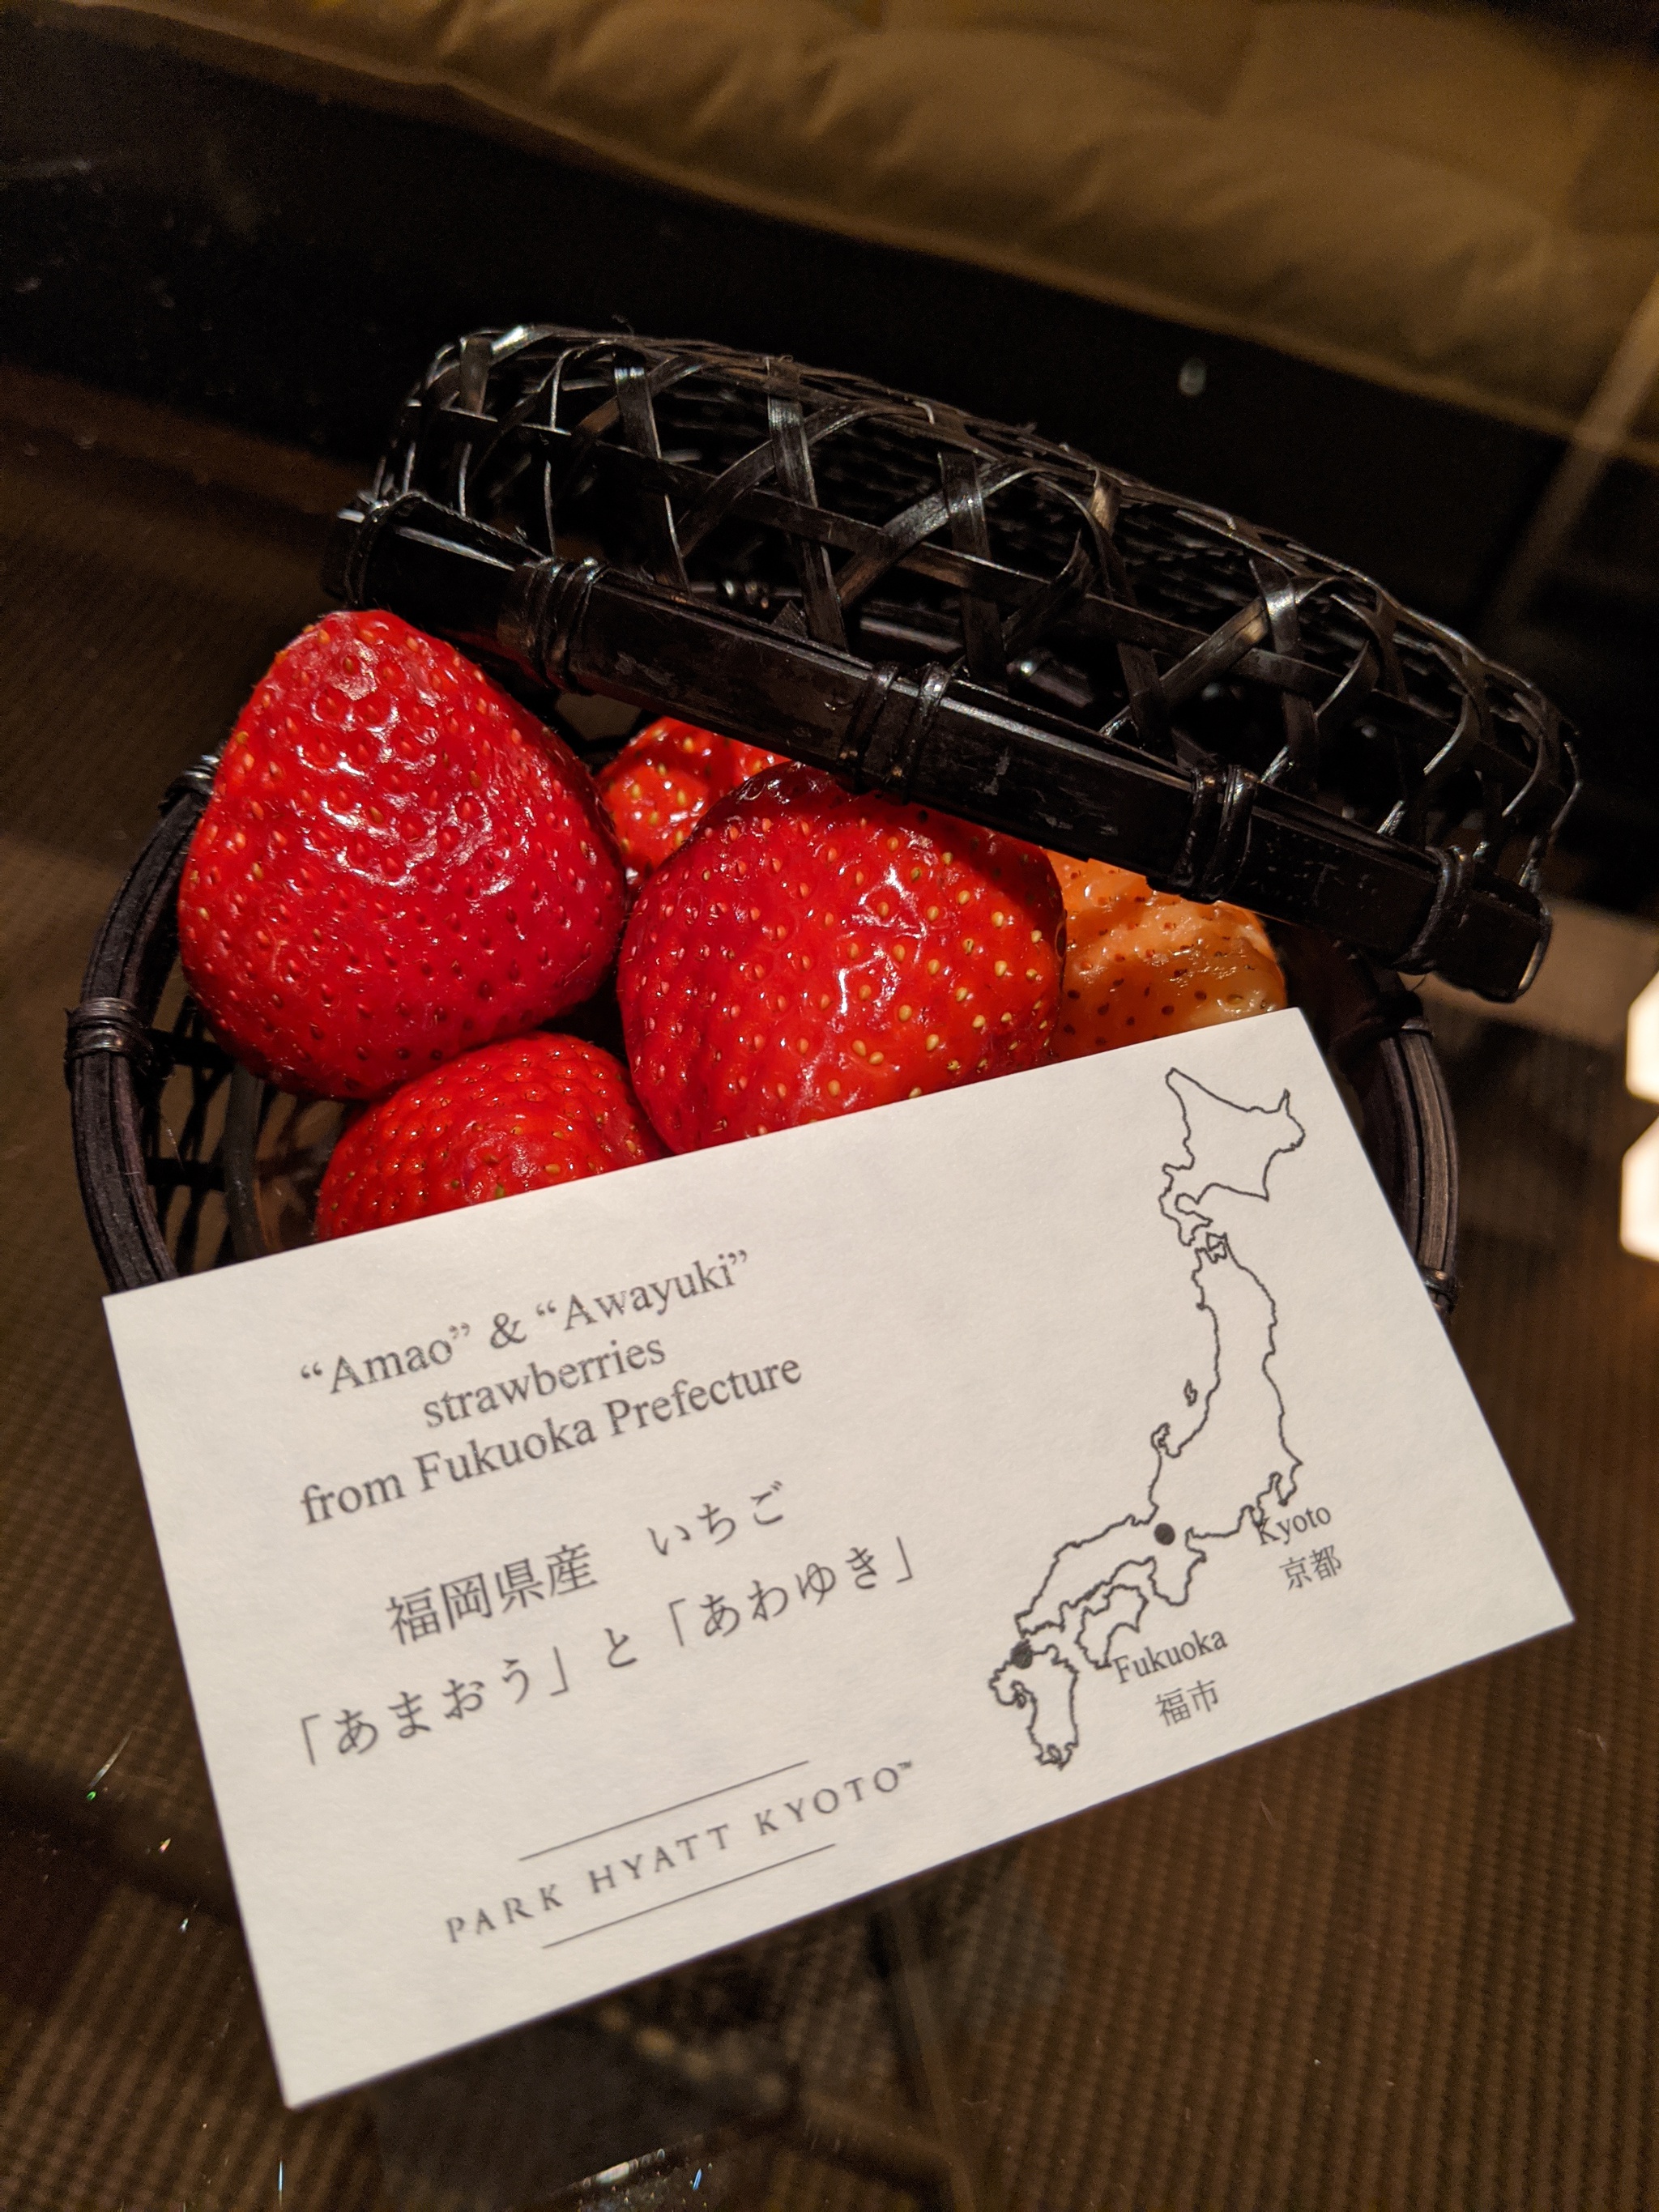 “Amao” & “Awayuki”
strawberries
from Fukuoka Prefecture
福岡県産　いちご
「あまおう」と「あわゆき」
PARK HYATT KYOTO™
Kyoto
京都
Fukuoka
福市